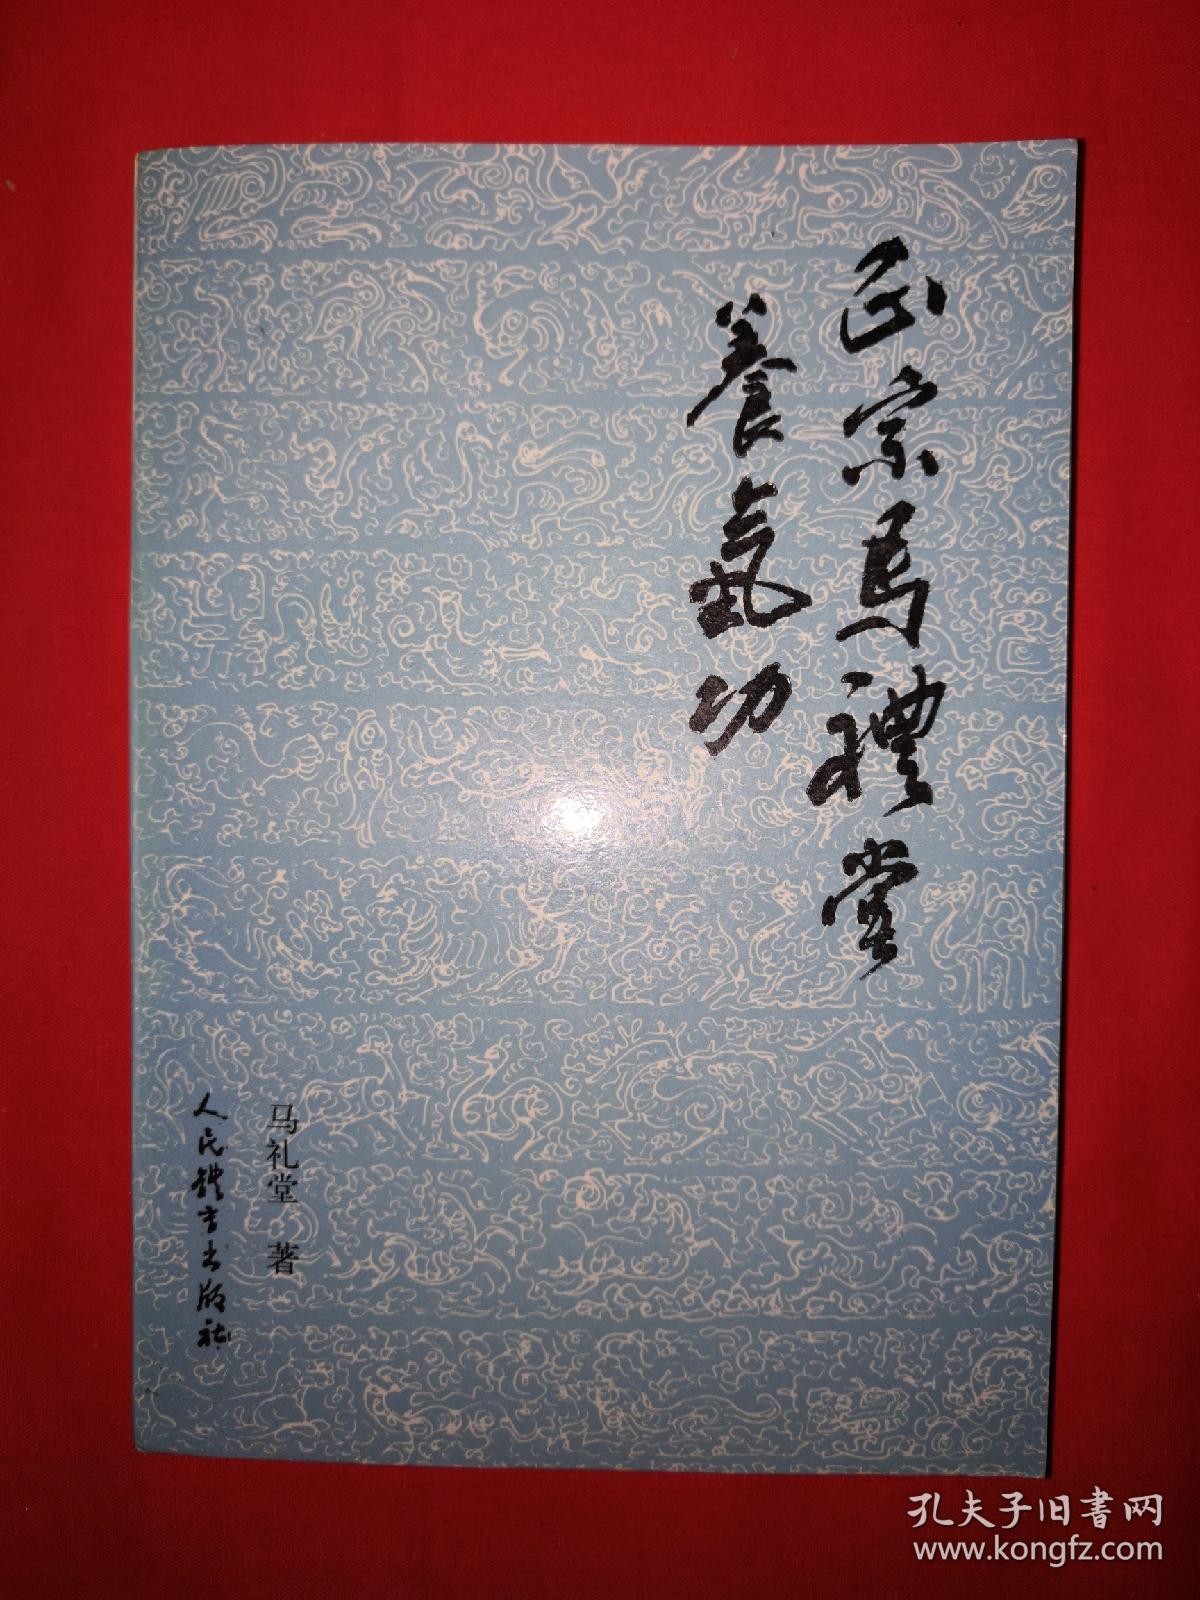 正宗馬禮堂
養氣功
马礼堂 著
人民體育出版社
孔夫子旧書网
www.kongfz.com